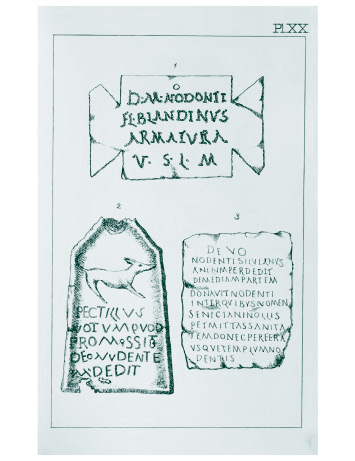 Pl.XX.
1
D·M·NODONTI
FL·BLANDINVS
ARMATVRA
V·S·L·M
2
PECTILLVS
VOTVM QVOD
PROMISSIT
DEO NVDENTE
M DEDIT
3
DEVO
NODENTI SILVIANVS
ANILVM PERDEDIT
DEMEDIAM PARTEM
DONAVIT NODENTI
INTER QVIBVS NOMEN
SENICIANI NOLLIS
PETMITTAS SANITA
TEM DONEC PERFERA
VSQVE TEMPLVM NO
DENTIS